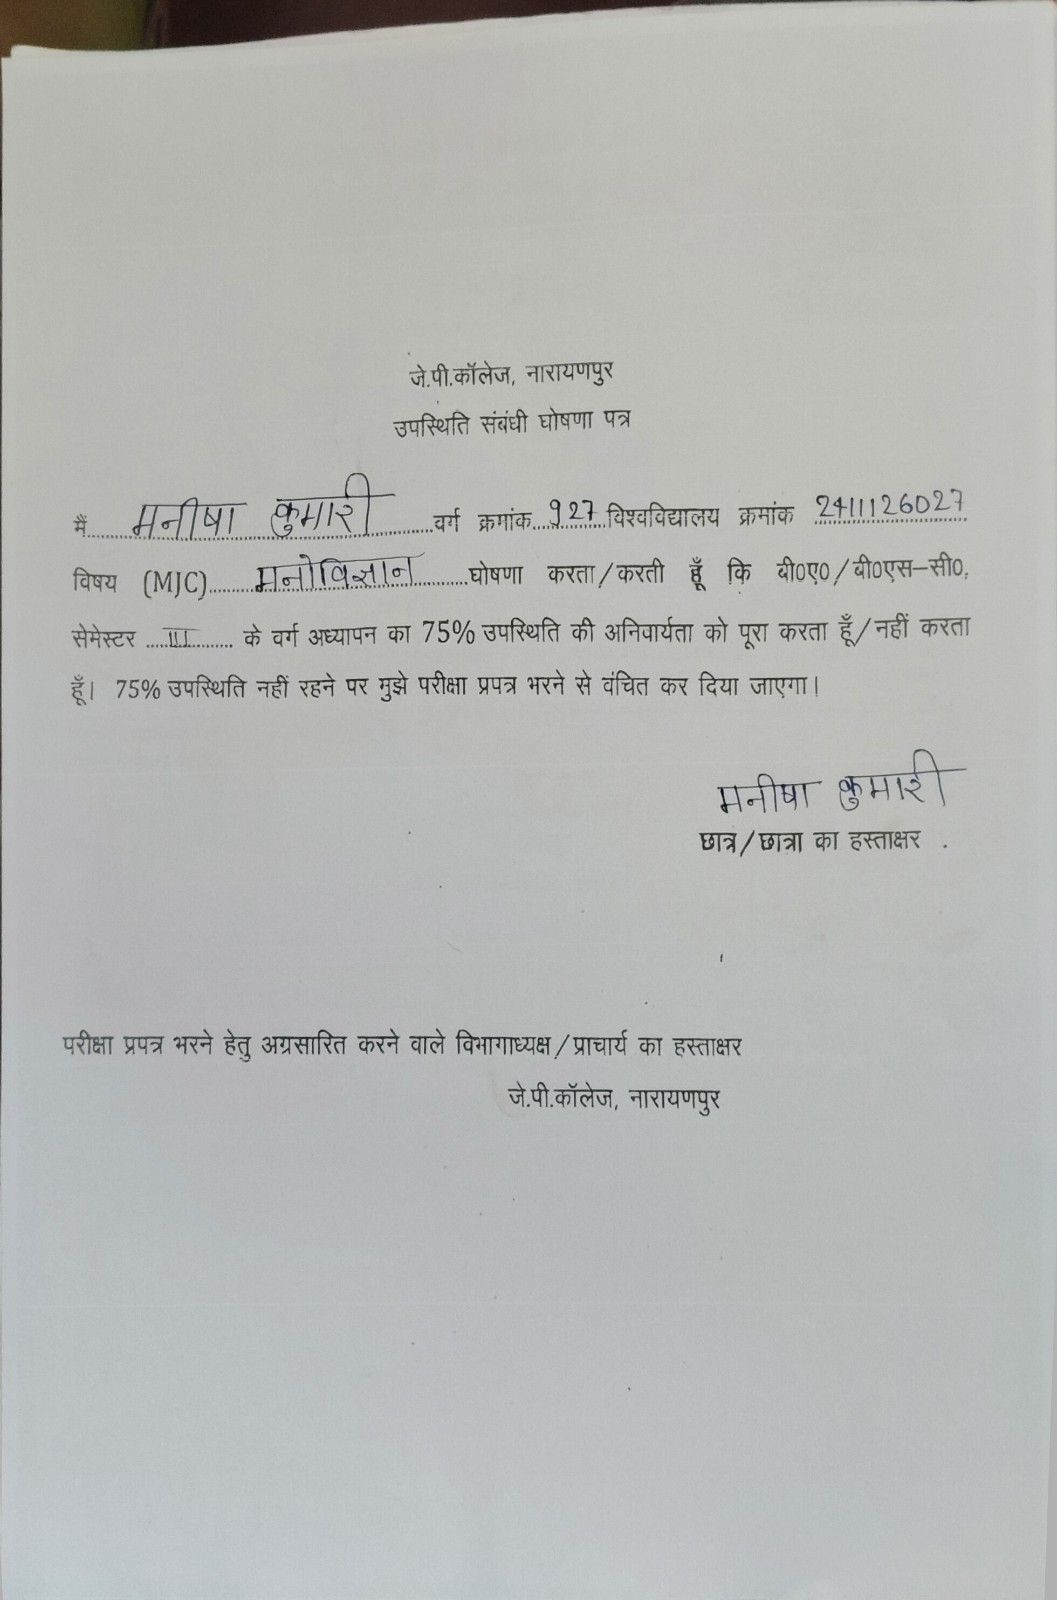 जे.पी.कॉलेज, नारायणपुर
उपस्थिति संबंधी घोषणा पत्र
मैं मनीषा कुमारी वर्ग क्रमांक 927 विश्वविद्यालय क्रमांक 2411126027
विषय (MJC) मनोविज्ञान घोषणा करता/करती हूँ कि बी०ए०/बी०एस-सी०,
सेमेस्टर III के वर्ग अध्यापन का 75% उपस्थिति की अनिवार्यता को पूरा करता हूँ/नहीं करता
हूँ। 75% उपस्थिति नहीं रहने पर मुझे परीक्षा प्रपत्र भरने से वंचित कर दिया जाएगा।
मनीषा कुमारी
छात्र/छात्रा का हस्ताक्षर .
परीक्षा प्रपत्र भरने हेतु अग्रसारित करने वाले विभागाध्यक्ष/प्राचार्य का हस्ताक्षर
जे.पी.कॉलेज, नारायणपुर